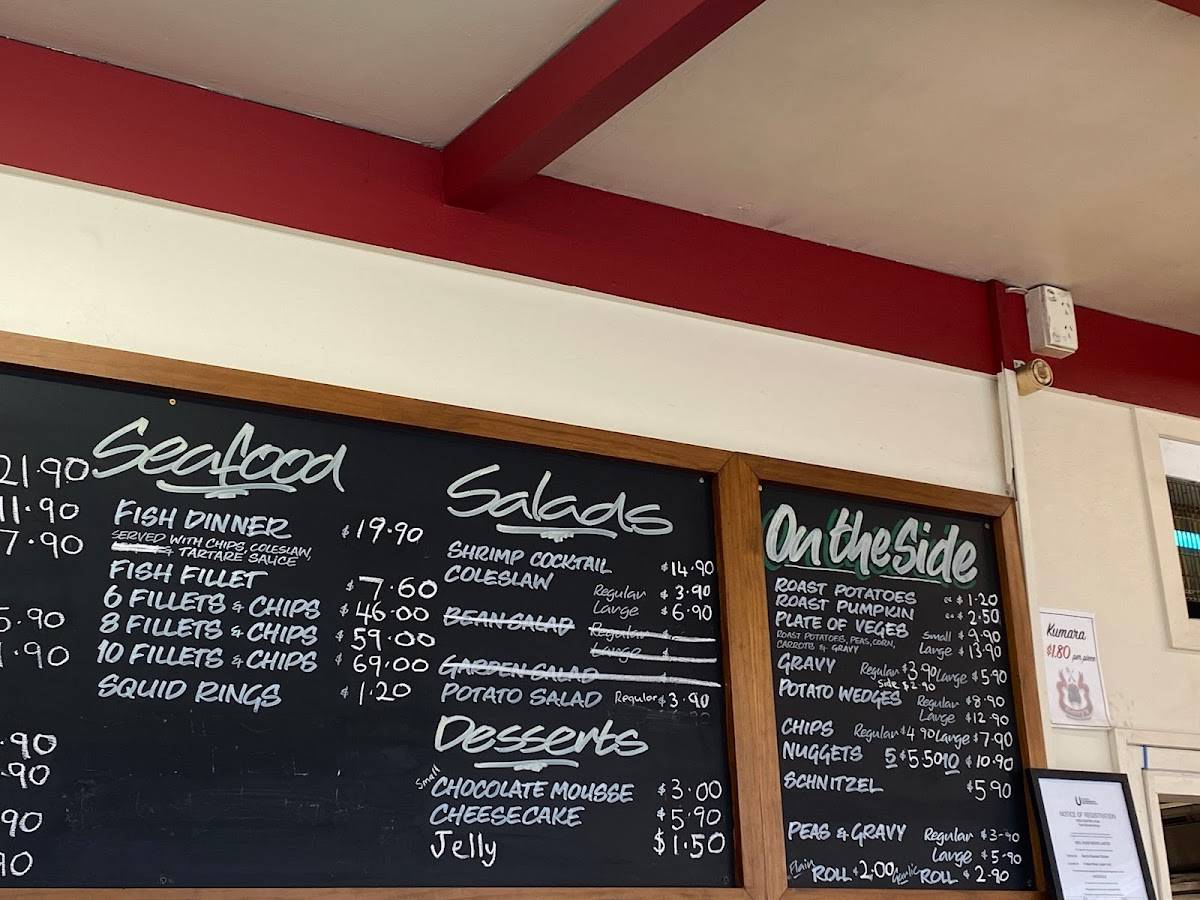 21.90
11.90
7.90
5.90
1.90
.90
.90
90
90
Seafood
FISH DINNER $19.90
SERVED WITH CHIPS, COLESLAW,
& TARTARE SAUCE
FISH FILLET $7.60
6 FILLETS & CHIPS $46.00
8 FILLETS & CHIPS $59.00
10 FILLETS & CHIPS $69.00
SQUID RINGS $1.20
Salads
SHRIMP COCKTAIL $14.90
COLESLAW Regular $3.90
Large $6.90
BEAN SALAD Regular $
Large $
GARDEN SALAD $
POTATO SALAD Regular $3.90
Desserts
Small CHOCOLATE MOUSSE $3.00
CHEESECAKE $5.90
Jelly $1.50
On the Side
ROAST POTATOES ea $1.20
ROAST PUMPKIN ea $2.50
PLATE OF VEGES Small $9.90
ROAST POTATOES, PEAS, CORN, Large $13.90
CARROTS & GRAVY
GRAVY Regular $3.90 Large $5.90
Side $2.90
POTATO WEDGES Regular $8.90
Large $12.90
CHIPS Regular $4.90 Large $7.90
NUGGETS 5 $5.50 10 $10.90
SCHNITZEL $5.90
PEAS & GRAVY Regular $3.90
Large $5.90
Plain ROLL $2.00 Garlic ROLL $2.90
Kumara
$1.80 per piece
NOTICE OF REGISTRATION